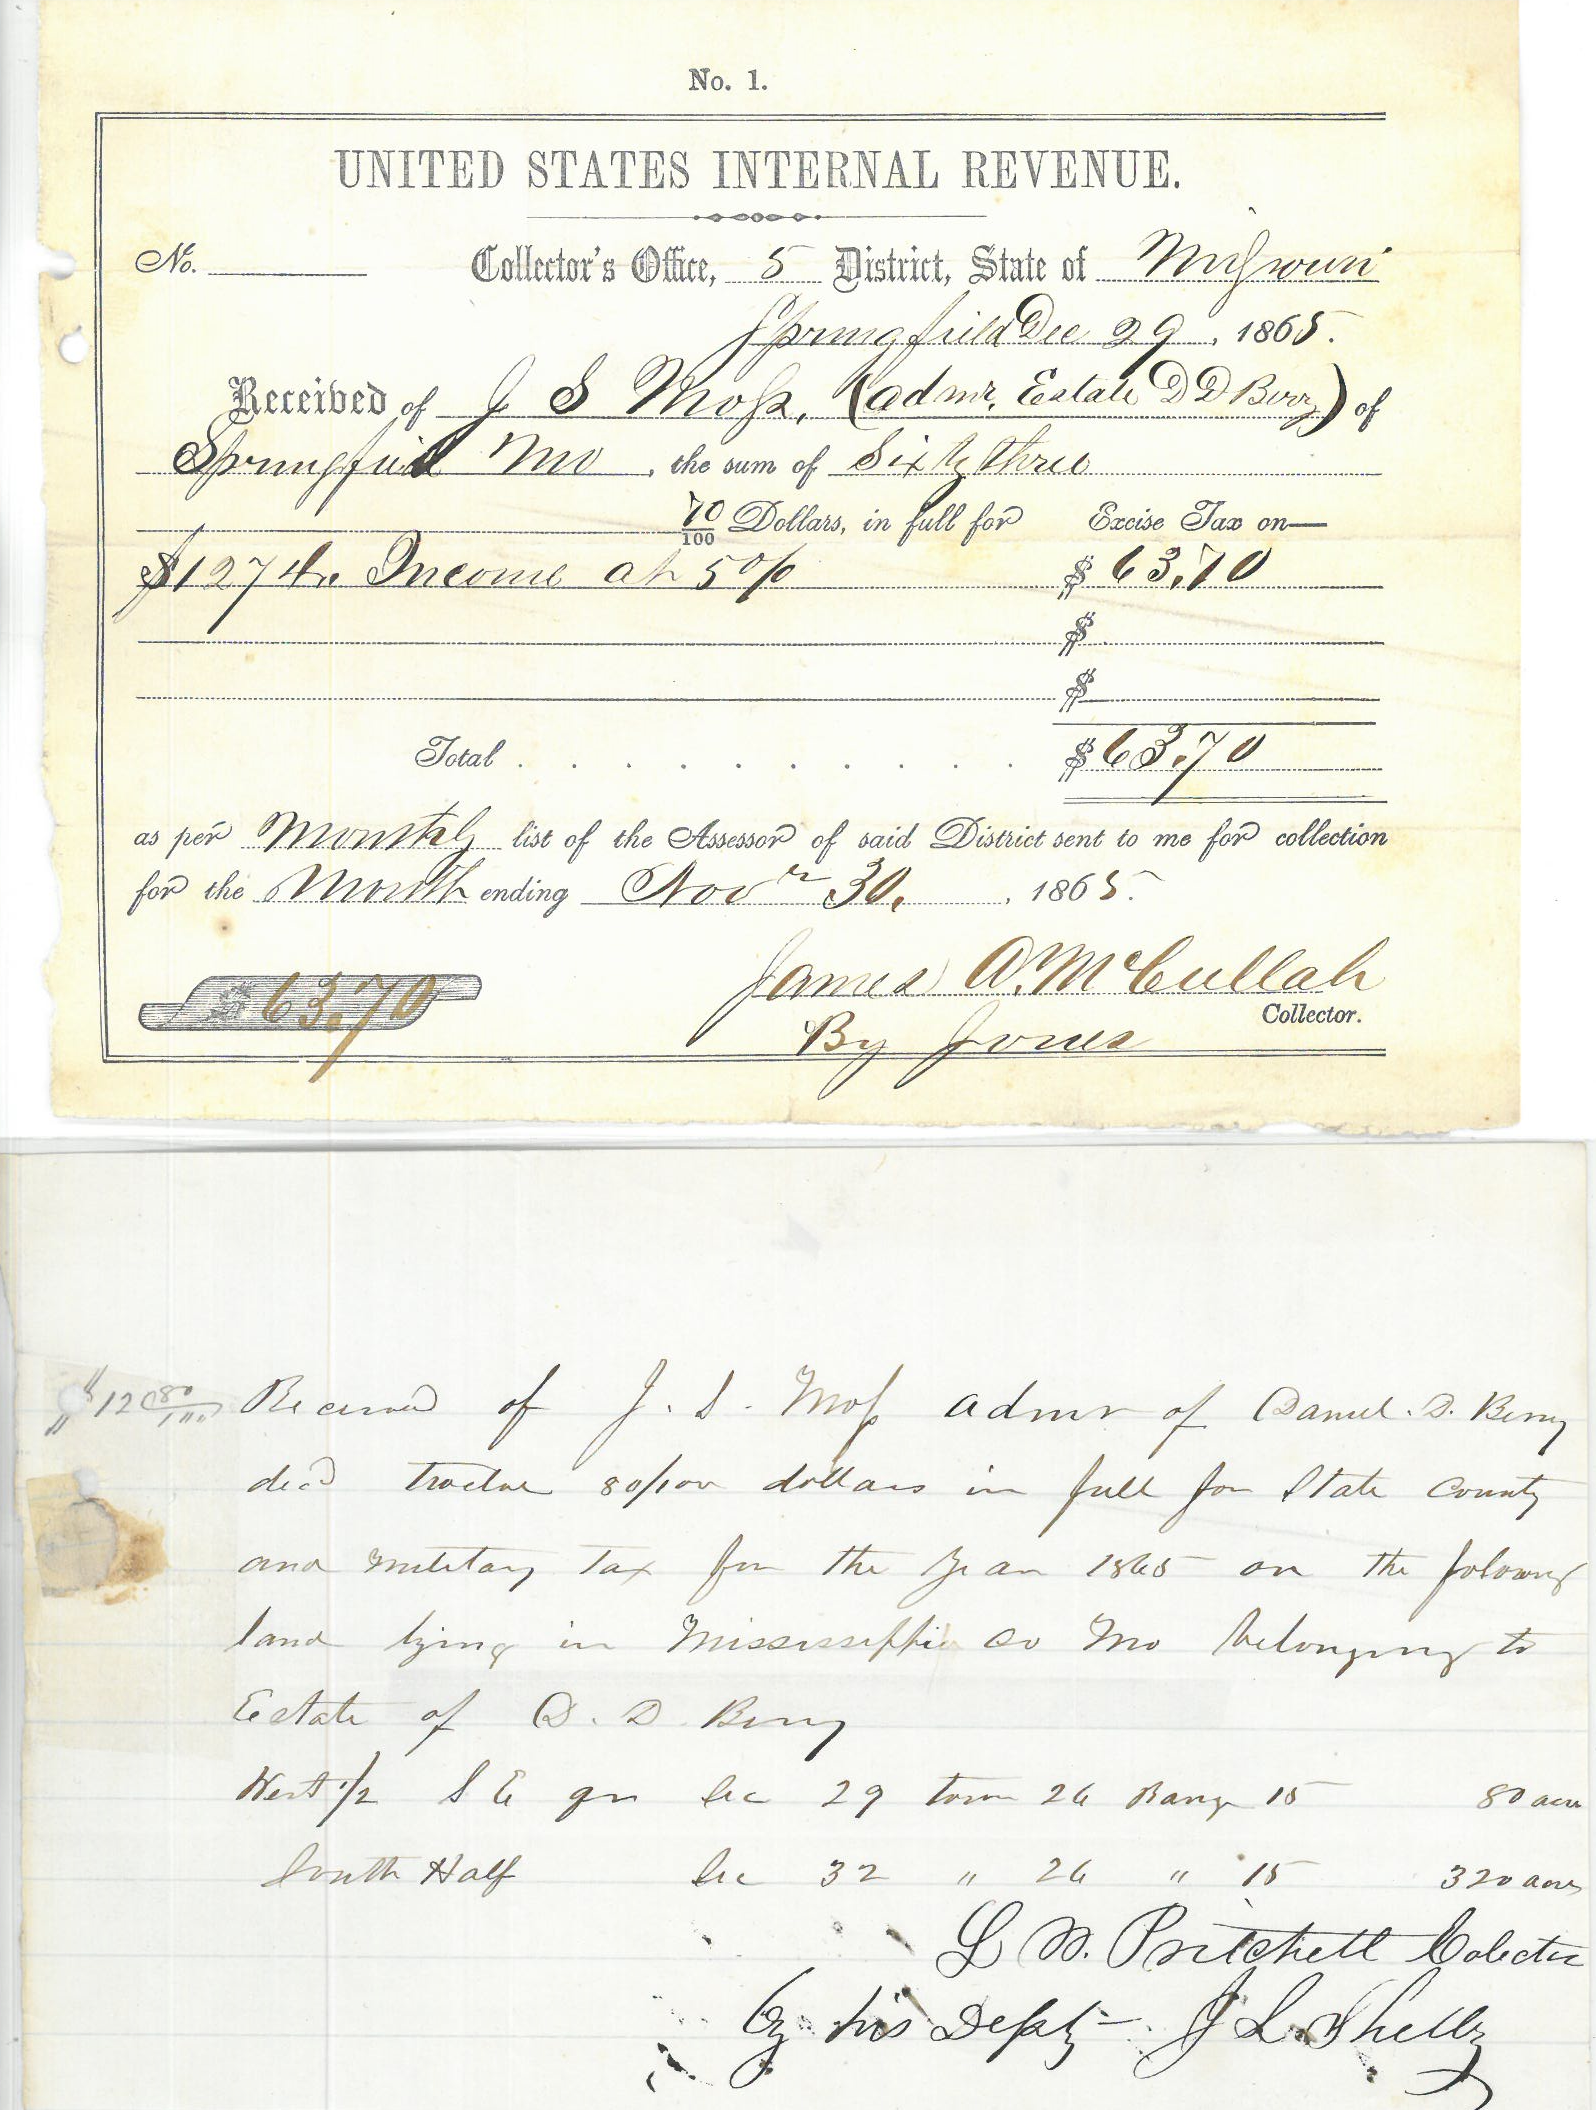 No. 1.
UNITED STATES INTERNAL REVENUE.
No. Collector's Office, 5 District, State of Missouri
Springfield Dec 29, 1865.
Received of J S Moss, (admr. Estate D D Berry) of
Springfield Mo, the sum of Sixty three
70/100 Dollars, in full for Excise Tax on—
$1274. Income at 5% $63.70
$
$
Total . . . . . . . . . . $63.70
as per Monthly list of the Assessor of said District sent to me for collection
for the Month ending Novr 30, 1865.
$63.70
James A. McCullah
Collector.
By Jones
$12 80/100 Received of J. S. Moss admr of Daniel. D. Berry
decd twelve 80/100 dollars in full for State County
and military Tax for the Year 1865 on the folowing
land lying in Mississippi Co Mo belonging to
Estate of D. D Berry
West 1/2 S E qr Sec 29 town 26 Range 15 80 acres
South Half Sec 32 " 26 " 15 320 acres
Pritchett Colector
by his Depty J L Shelby